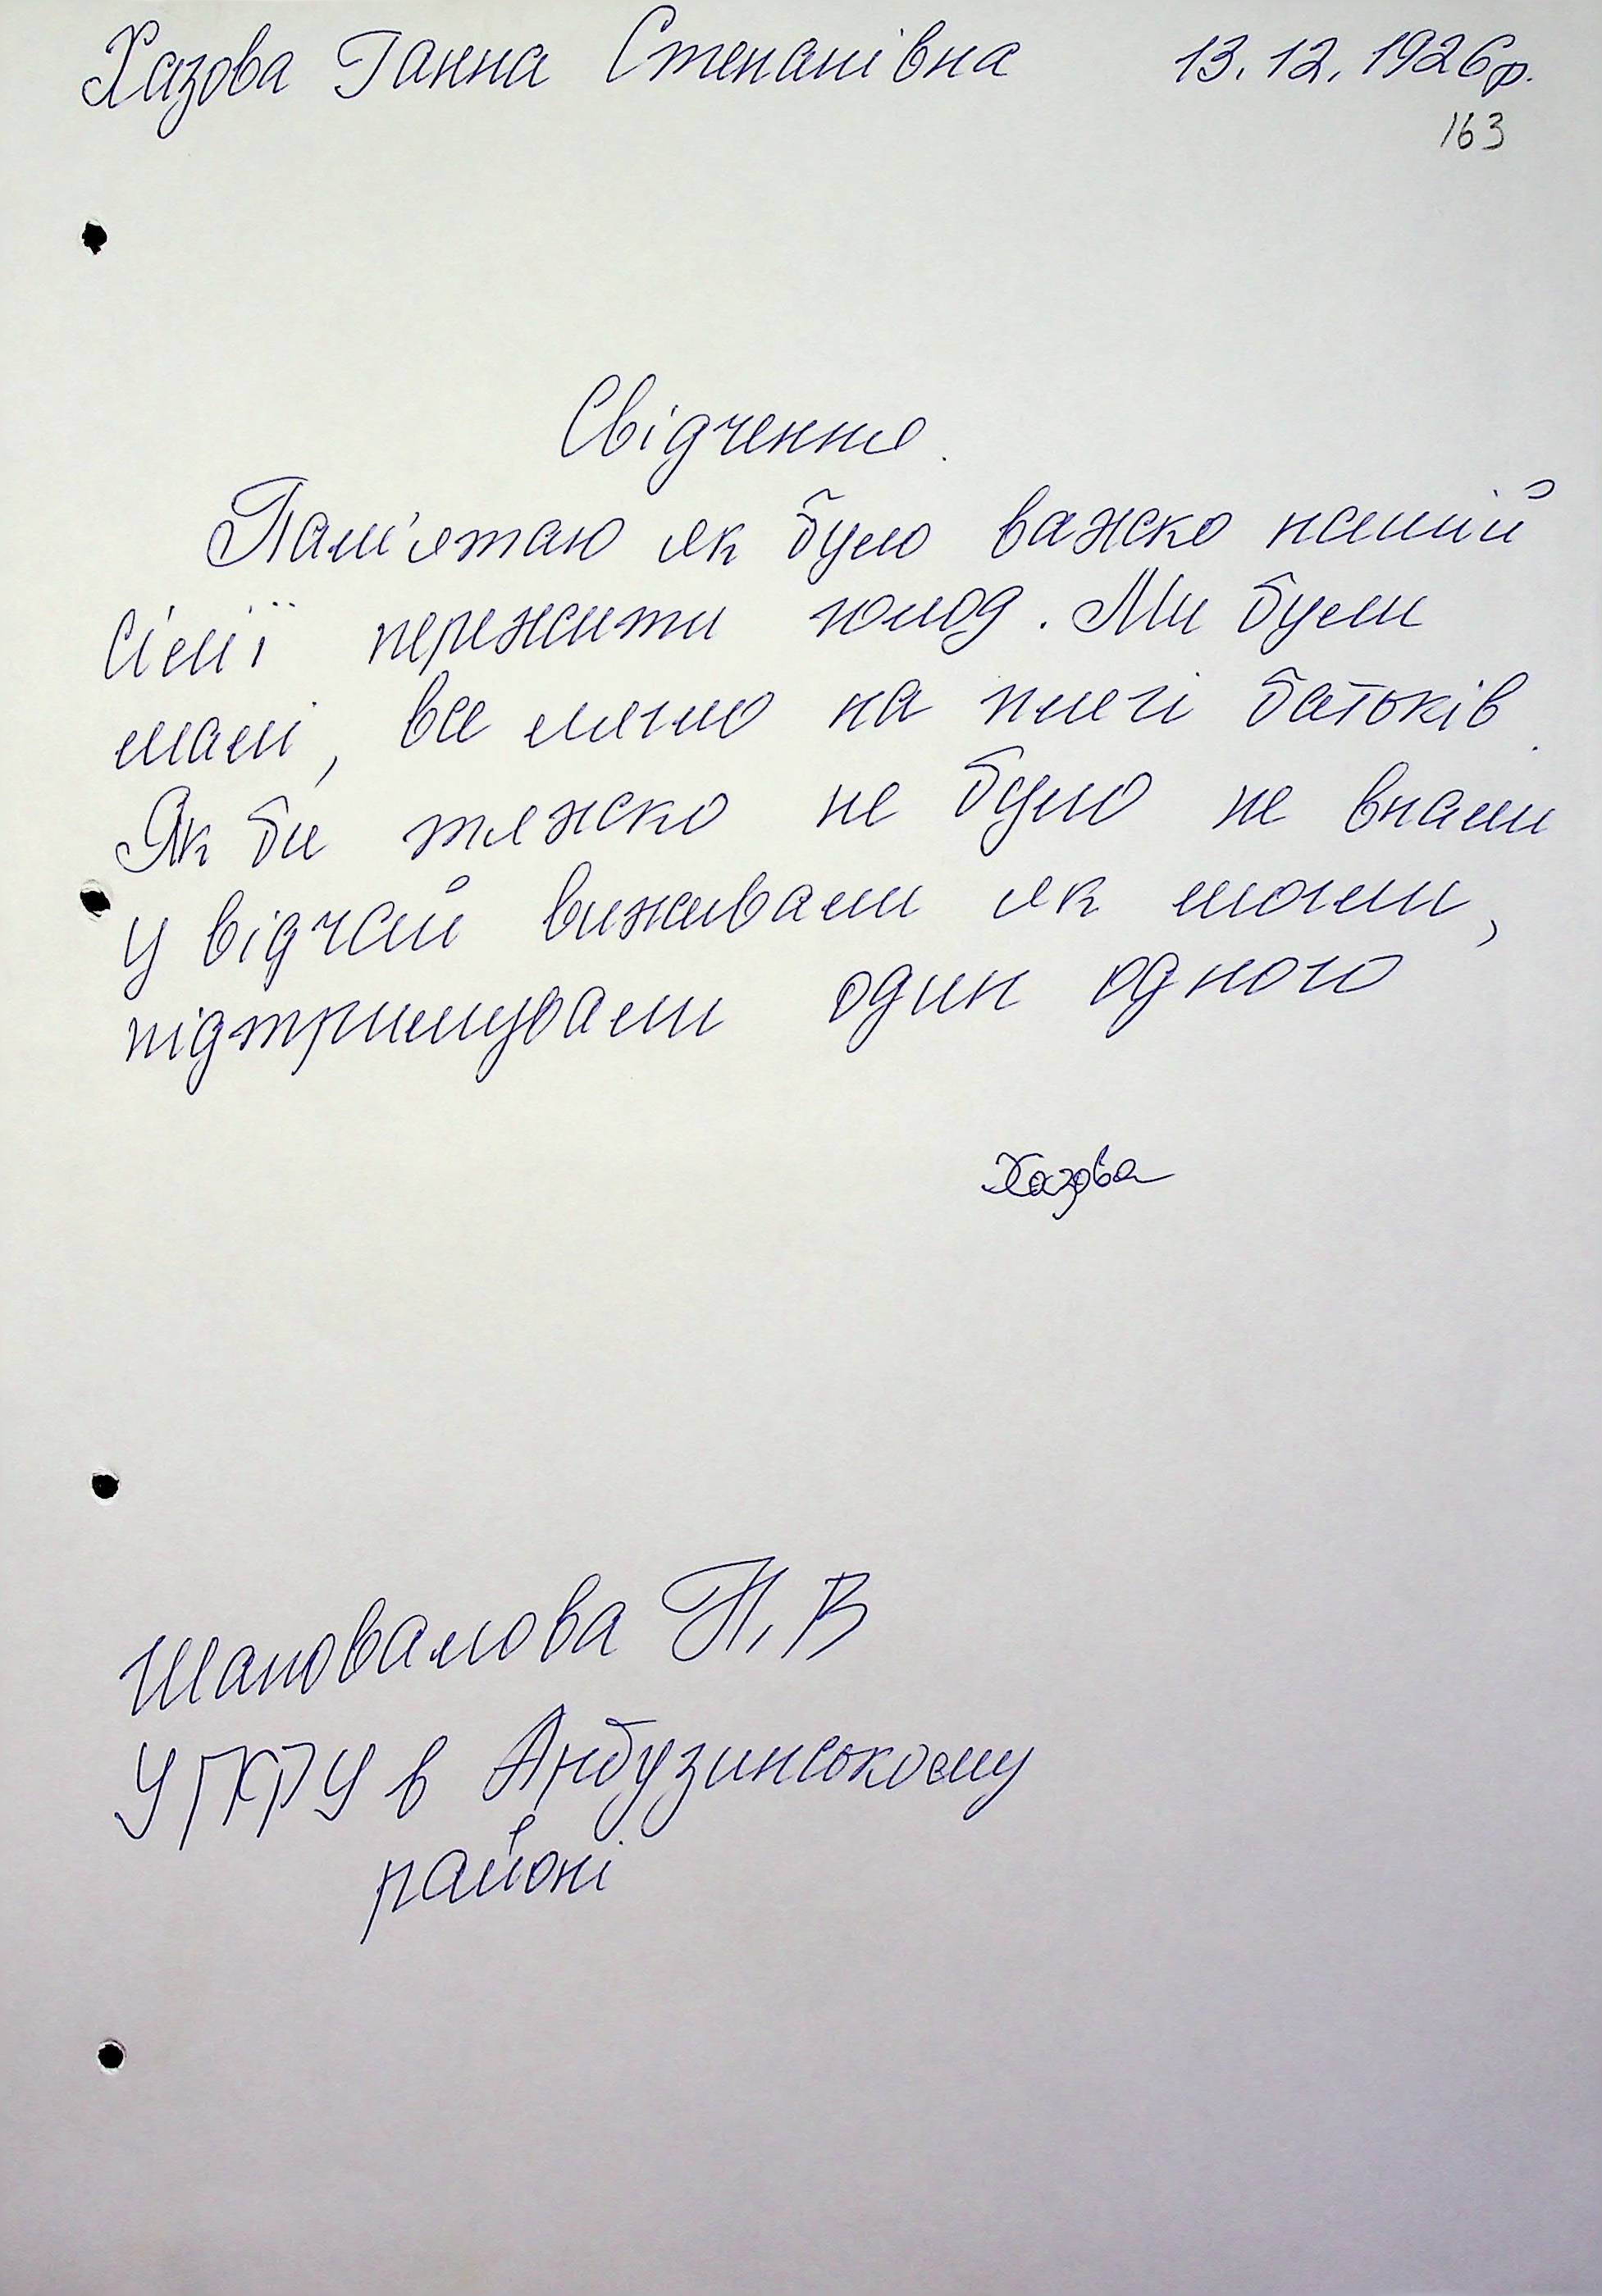 Хазова Ганна Степанівна 13.12.1926р.
163
Свідчення.
Пам'ятаю як було важко нашій
сімї пережити голод. Ми були
малі, все лягло на плечі батьків.
Як би тяжко не було не впали
у відчай виживали як могли,
підтримували один одного
Хазова
Шаповалова Н. В
УПФУ в Арбузинському
районі